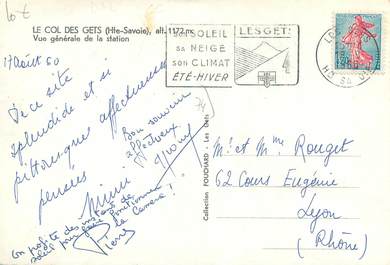 10€
LE COL DES GETS (Hte-Savoie), alt. 1172 m.
Vue générale de la station
17 août 60
De ce site
splendide et si
pittoresque affectueuses
pensées
Mimi
Bon souvenir
affectueux
Yvonne
On profite des instants de
soleil pour faire fonctionner
la Camera !
Pierre
SON SOLEIL
SA NEIGE
SON CLIMAT
ÉTÉ-HIVER
LES GETS
Collection FOUCHARD - Les Gets
74
Mr et Mme Rouget
62 Cours Eugénie
Lyon
(Rhône)